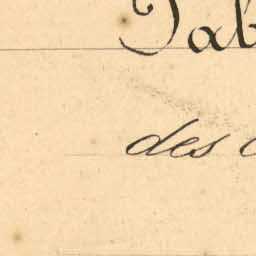 Tab
des